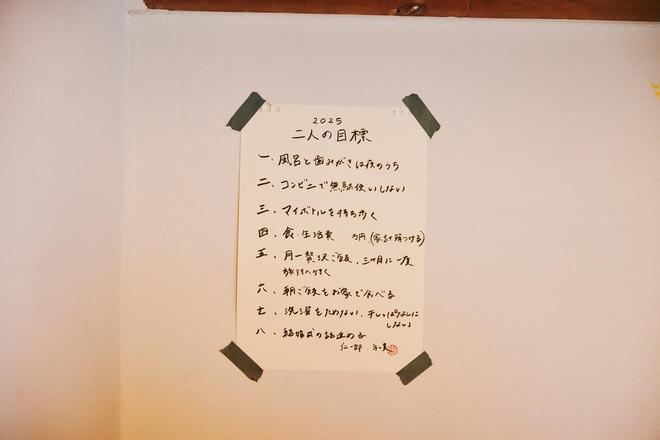 2025
二人の目標
一、風呂と歯みがきは夜のうち
二、コンビニで無駄使いしない
三、マイボトルを持ち歩く
四、食・生活費 万円(家計簿つける)
五、月一贅沢ご飯、三ヶ月に一度
旅行へ行く
六、朝ご飯をお家で食べる
七、洗濯をためない、干しっぱなしに
しない
八、結婚式の話進める